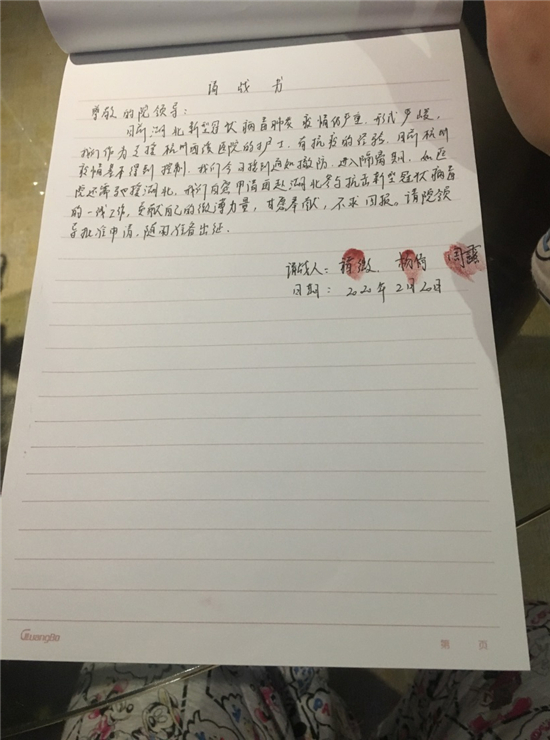 请战书
尊敬的院领导：
目前湖北新型冠状病毒肺炎疫情仍严重，形式严峻，
我们作为支援杭州西溪医院的护士，有抗疫的经验，目前杭州
疫情基本得到控制，我们今日接到通知撤防，进入隔离期，如医
院还需驰援湖北，我们自愿申请再赴湖北参与抗击新型冠状病毒
的一线工作，贡献自己的微薄力量，甘愿奉献，不求回报。请院领
导批准申请，随时准备出征.
请战人：蒋微. 杨 闫露
日期：2020年2月20日
GuangBo
第 页